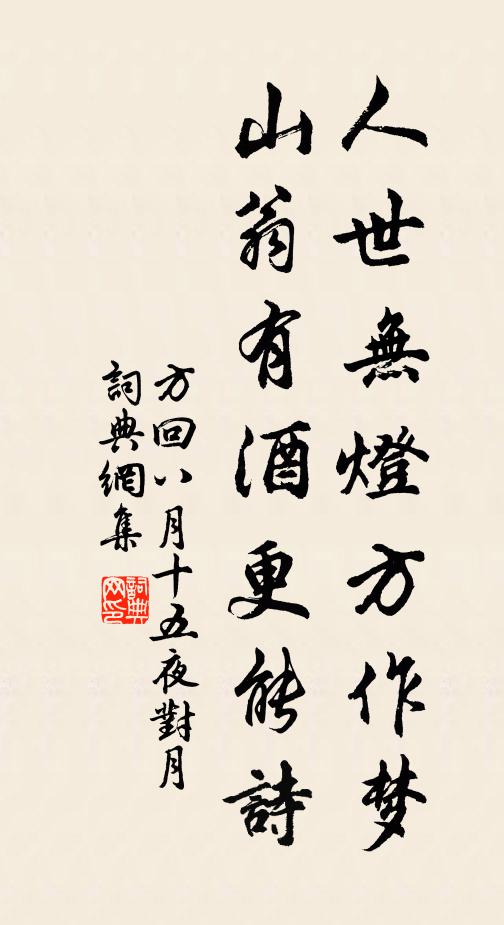 人世無燈方作梦
山翁有酒更能詩
方回八月十五夜對月
詞典網集
詞典网印